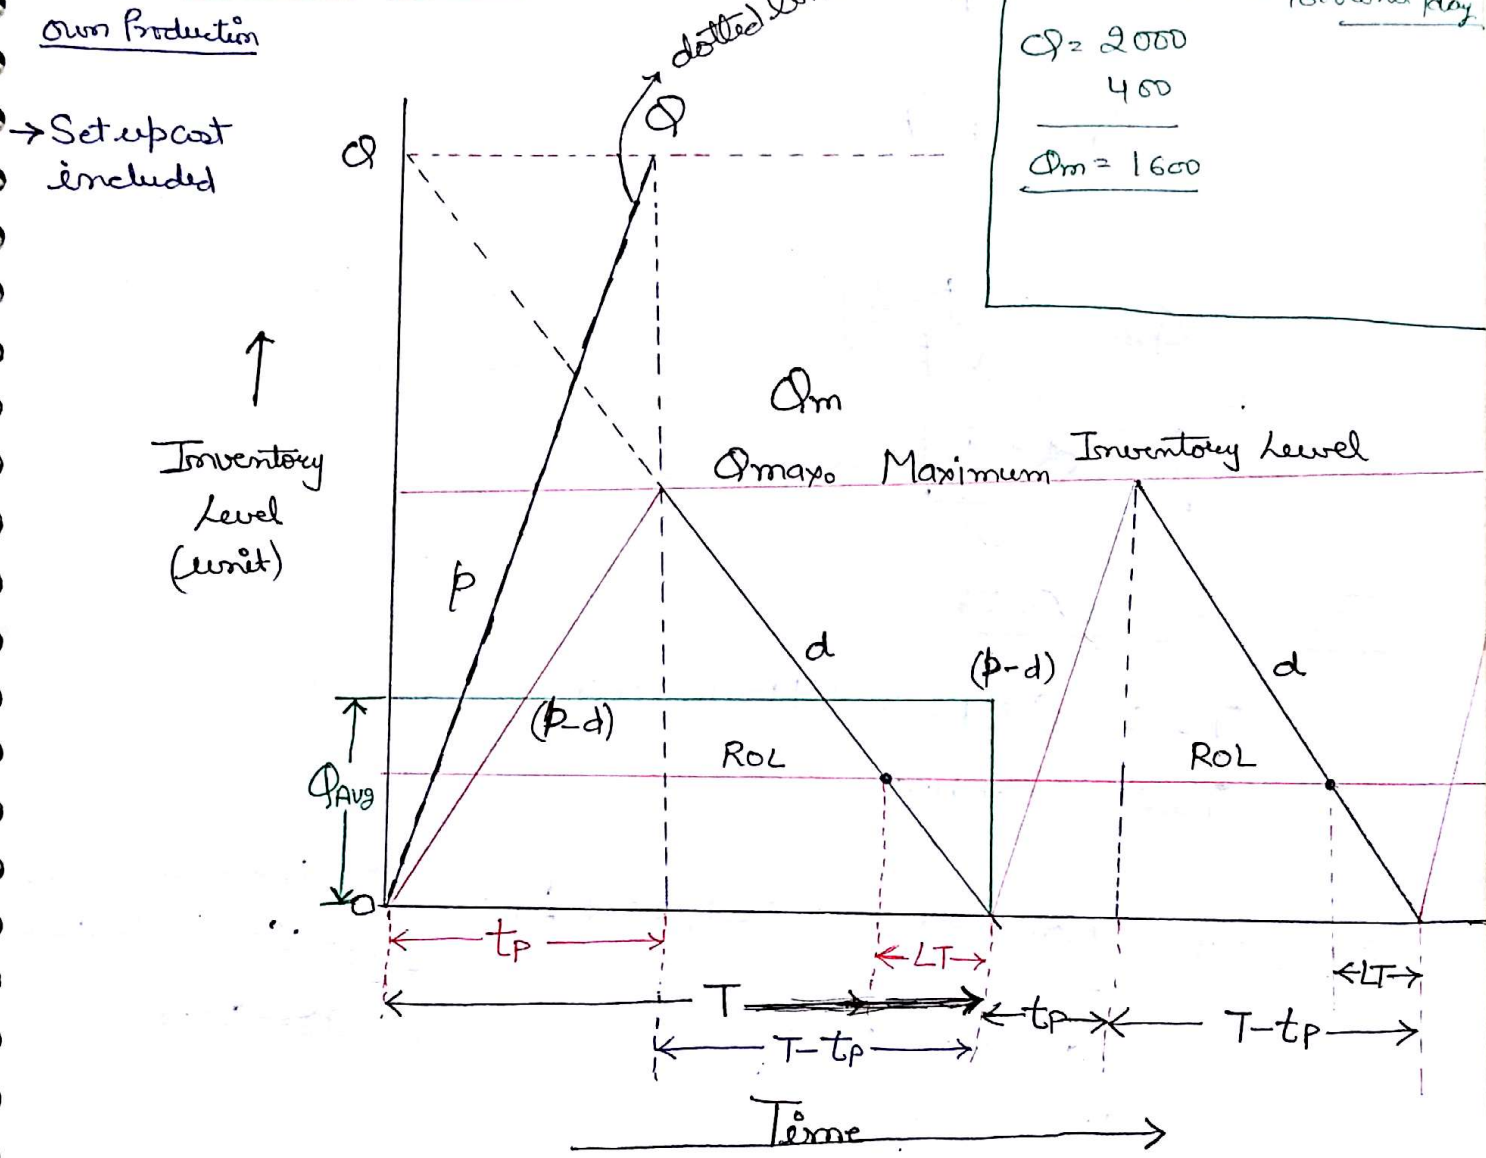 Own Production
→ Set up cost
included
dotted
Q = 2000
400
Qm = 1600
Q
Q
↑
Inventory
Level
(unit)
Qm
Qmax. Maximum Inventory Level
p
d
(p-d)
d
(p-d)
ROL
ROL
QAvg
O
tp
LT
LT
T
tp
T-tp
T-tp
Time